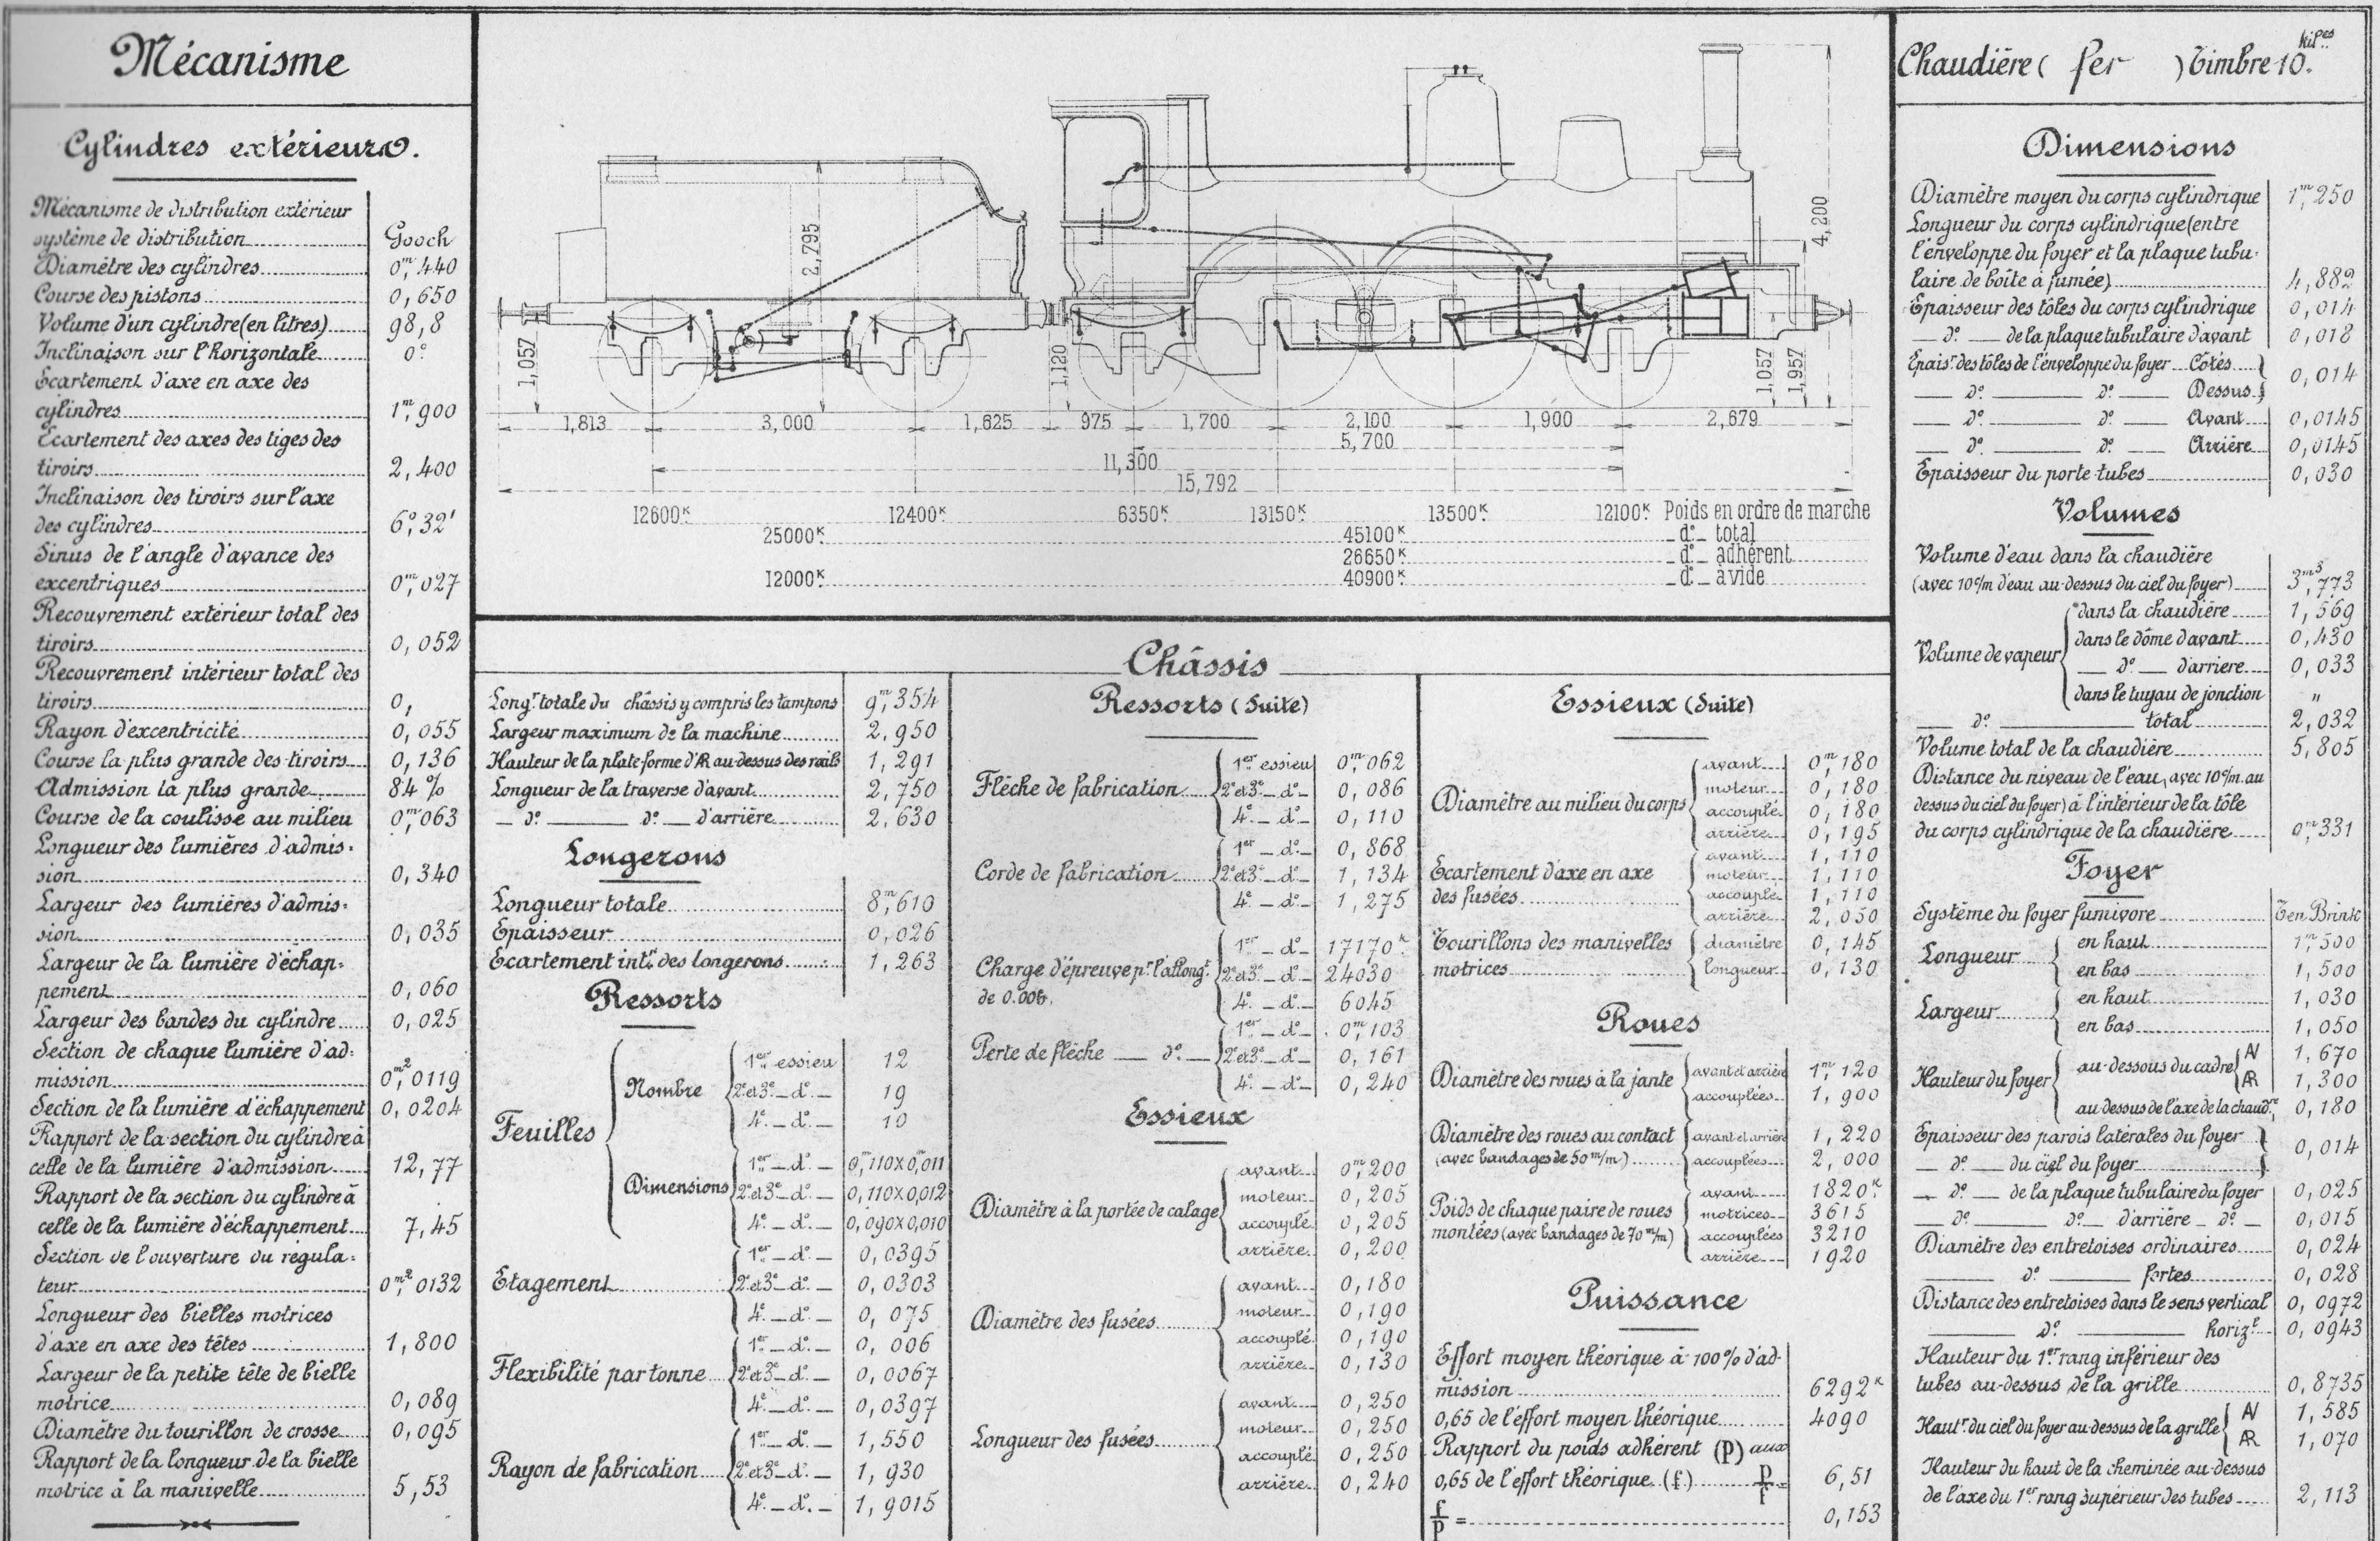 Mécanisme
Cylindres extérieurs.
Mécanisme de distribution extérieur
système de distribution Gooch
Diamètre des cylindres 0m,440
Course des pistons 0,650
Volume d'un cylindre (en litres) 98,8
Inclinaison sur l'horizontale 0°
Ecartement d'axe en axe des
cylindres 1m,900
Ecartement des axes des tiges des
tiroirs 2,400
Inclinaison des tiroirs sur l'axe
des cylindres 6°,32'
Sinus de l'angle d'avance des
excentriques 0m,027
Recouvrement extérieur total des
tiroirs 0,052
Recouvrement intérieur total des
tiroirs 0,
Rayon d'excentricité 0,055
Course la plus grande des tiroirs 0,136
Admission la plus grande 84%
Course de la coulisse au milieu 0m,063
Longueur des lumières d'admis-
sion 0,340
Largeur des lumières d'admis-
sion 0,035
Largeur de la lumière d'échap-
pement 0,060
Largeur des bandes du cylindre 0,025
Section de chaque lumière d'ad-
mission 0m²,0119
Section de la lumière d'échappement 0,0204
Rapport de la section du cylindre à
celle de la lumière d'admission 12,77
Rapport de la section du cylindre à
celle de la lumière d'échappement 7,45
Section de l'ouverture du régula-
teur 0m²,0132
Longueur des bielles motrices
d'axe en axe des têtes 1,800
Largeur de la petite tête de bielle
motrice 0,089
Diamètre du tourillon de crosse 0,095
Rapport de la longueur de la bielle
motrice à la manivelle 5,53
2,795
4,200
1,057
1,120
1,057
1,957
1,813 3,000 1,625 975 1,700 2,100 1,900 2,679
5,700
11,300
15,792
12600K 12400K 6350K 13150K 13500K 12100K Poids en ordre de marche
25000K 45100K _d°_ total
26650K _d°_ adhérent
12000K 40900K _d°_ à vide
Châssis
Longr totale du châssis y compris les tampons 9m,354
Largeur maximum de la machine 2,950
Hauteur de la plate forme d'AR au-dessus des rails 1,291
Longueur de la traverse d'avant 2,750
_ d° _ d° _ d'arrière 2,630
Longerons
Longueur totale 8m,610
Epaisseur 0,026
Ecartement intr des longerons 1,263
Ressorts
Feuilles
Nombre
1er essieu 12
2e et 3e _ d° _ 19
4e _ d° _ 10
Dimensions
1er _ d° _ 0m,110X0m,011
2e et 3e _ d° _ 0,110X0,012
4e _ d° _ 0,090X0,010
Etagement
1er _ d° _ 0,0395
2e et 3e _ d° _ 0,0303
4e _ d° _ 0,075
Flexibilité par tonne
1er _ d° _ 0,006
2e et 3e _ d° _ 0,0067
4e _ d° _ 0,0397
Rayon de fabrication
1er _ d° _ 1,550
2e et 3e _ d° _ 1,930
4e _ d° _ 1,9015
Ressorts (Suite)
Flèche de fabrication
1er essieu 0m,062
2e et 3e _ d° _ 0,086
4e _ d° _ 0,110
Corde de fabrication
1er _ d° _ 0,868
2e et 3e _ d° _ 1,134
4e _ d° _ 1,275
Charge d'épreuve pr l'allongt
de
1er _ d° _ 17170K
2e et 3e _ d° _ 24030
4e _ d° _ 6045
Perte de flèche _ d° _
1er _ d° _ 0m,103
2e et 3e _ d° _ 0,161
4e _ d° _ 0,240
Essieux
Diamètre à la portée de calage
avant 0m,200
moteur 0,205
accouplé 0,205
arrière 0,200
Diamètre des fusées
avant 0,180
moteur 0,190
accouplé 0,190
arrière 0,130
Longueur des fusées
avant 0,250
moteur 0,250
accouplé 0,250
arrière 0,240
Essieux (Suite)
Diamètre au milieu du corps
avant 0m,180
moteur 0,180
accouplé 0,180
arrière 0,195
Ecartement d'axe en axe
des fusées
avant 1,110
moteur 1,110
accouplé 1,110
arrière 2,050
Tourillons des manivelles
motrices
diamètre 0,145
longueur 0,130
Roues
Diamètre des roues à la jante
avant et arrière 1m,120
accouplées 1,900
Diamètre des roues au contact
(avec bandages de 50 m/m)
avant et arrière 1,220
accouplées 2,000
Poids de chaque paire de roues
montées (avec bandages de 70 m/m)
avant 1820K
motrices 3615
accouplées 3210
arrière 1920
Puissance
Effort moyen théorique à 100% d'ad-
mission 6292K
0,65 de l'effort moyen théorique 4090
Rapport du poids adhérent (p) aux
0,65 de l'effort théorique (f) p/f = 6,51
f/p = 0,153
Chaudière ( fer ) Timbre 10 kilos.
Dimensions
Diamètre moyen du corps cylindrique 1m,250
Longueur du corps cylindrique (entre
l'enveloppe du foyer et la plaque tubu-
laire de boîte à fumée) 4,882
Epaisseur des tôles du corps cylindrique 0,014
_ d° _ de la plaque tubulaire d'avant 0,018
Epaisr des tôles de l'enveloppe du foyer Côtés
_ d° _ d° _ Dessus 0,014
_ d° _ d° _ Avant 0,0145
_ d° _ d° _ Arrière 0,0145
Epaisseur du porte-tubes 0,030
Volumes
Volume d'eau dans la chaudière
(avec 10c/m d'eau au-dessus du ciel du foyer) 3m3,773
Volume de vapeur
dans la chaudière 1,569
dans le dôme d'avant 0,430
_ d° _ d'arrière 0,033
dans le tuyau de jonction "
_ d° _ total 2,032
Volume total de la chaudière 5,805
Distance du niveau de l'eau, avec 10c/m au
dessus du ciel du foyer) à l'intérieur de la tôle
du corps cylindrique de la chaudière 0m,331
Foyer
Système du foyer fumivore Ten Brink
Longueur
en haut 1m,500
en bas 1,500
Largeur
en haut 1,030
en bas 1,050
Hauteur du foyer
au-dessous du cadre
AV 1,670
AR 1,300
au dessus de l'axe de la chaudre 0,180
Epaisseur des parois latérales du foyer
_ d° _ du ciel du foyer 0,014
_ d° _ de la plaque tubulaire du foyer 0,025
_ d° _ d° _ d'arrière _ d° _ 0,015
Diamètre des entretoises ordinaires 0,024
_ d° _ fortes 0,028
Distance des entretoises dans le sens vertical 0,0972
_ d° _ horizt 0,0943
Hauteur du 1er rang inférieur des
tubes au-dessus de la grille 0,8735
Hautr du ciel du foyer au-dessus de la grille
AV 1,585
AR 1,070
Hauteur du haut de la cheminée au-dessus
de l'axe du 1er rang supérieur des tubes 2,113